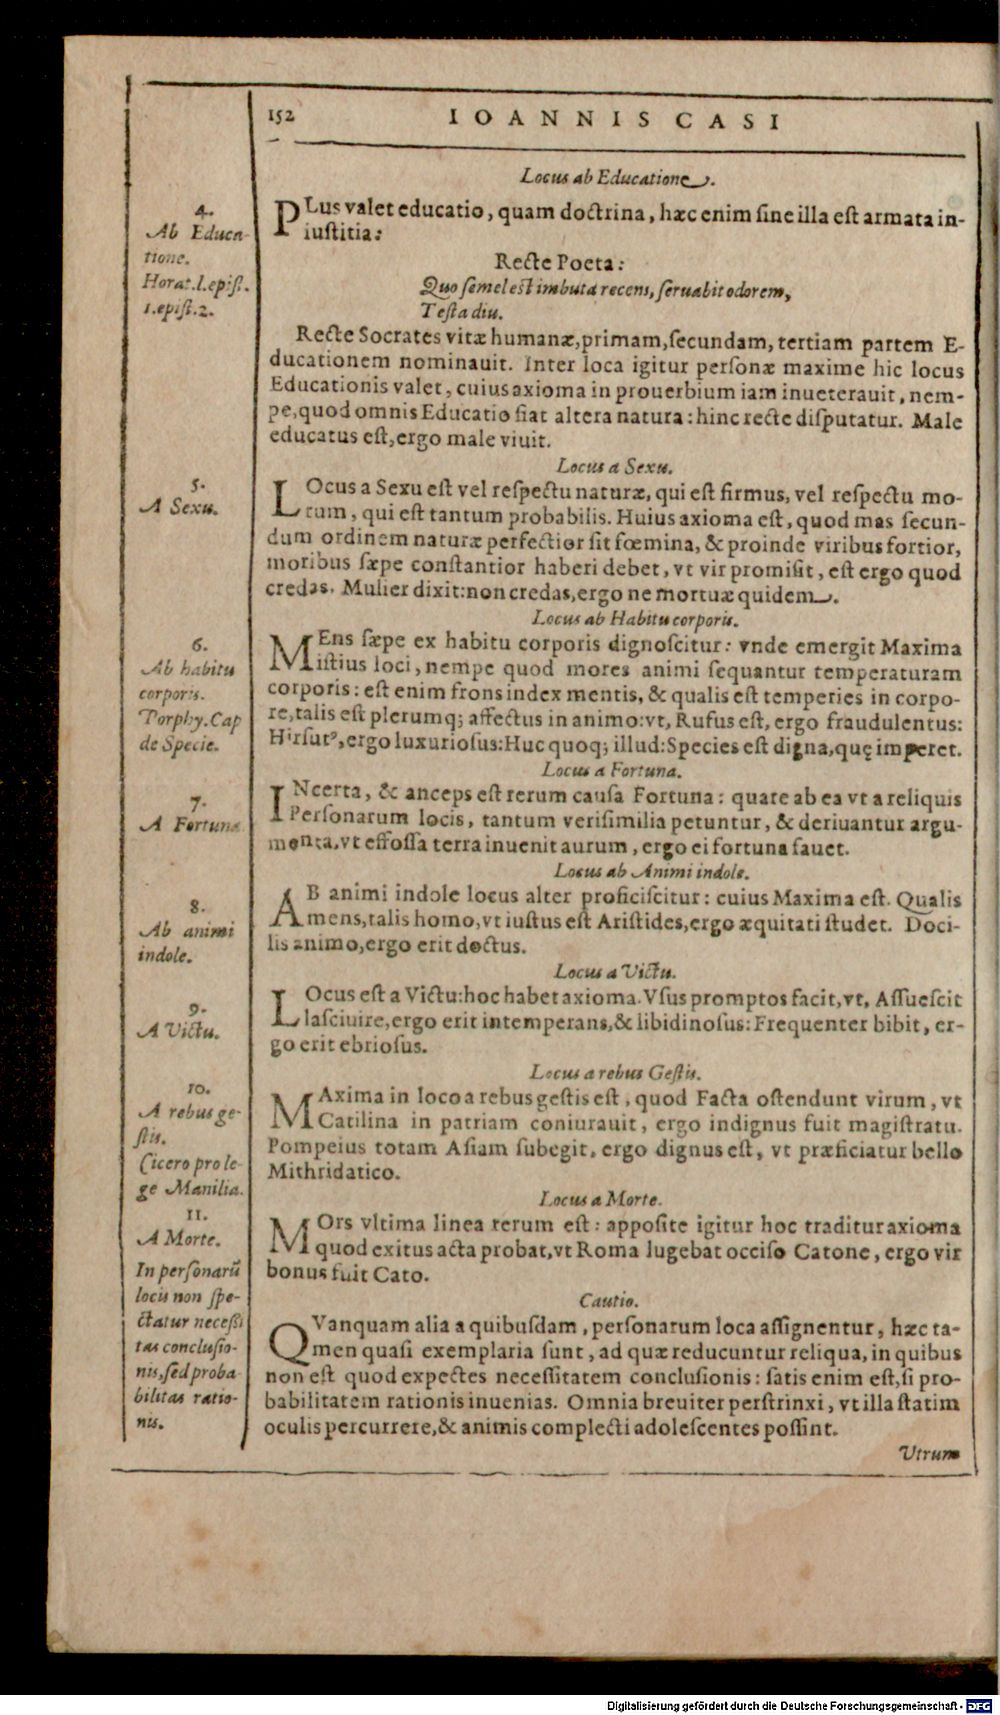 152 IOANNIS CASI
Locus ab Educatione.
4.
Ab Educa-
tione.
Horat.l.epiſt.
1.epiſt.2.
PLus valet educatio, quam doctrina, hæc enim ſine illa eſt armata in-
iuſtitia:
Recte Poeta:
Quo ſemel eſt imbuta recens, ſeruabit odorem,
Teſta diu.
Recte Socrates vitæ humanæ, primam, ſecundam, tertiam partem E-
ducationem nominauit. Inter loca igitur perſonæ maxime hic locus
Educationis valet, cuius axioma in prouerbium iam inueterauit, nem-
pe, quod omnis Educatio fiat altera natura: hinc recte diſputatur. Male
educatus eſt, ergo male viuit.
Locus a Sexu.
5.
A Sexu.
LOcus a Sexu eſt vel reſpectu naturæ, qui eſt firmus, vel reſpectu mo-
rum, qui eſt tantum probabilis. Huius axioma eſt, quod mas ſecun-
dum ordinem naturæ perfectior ſit fœmina, & proinde viribus fortior,
moribus ſæpe conſtantior haberi debet, vt vir promiſit, eſt ergo quod
credas. Mulier dixit: non credas, ergo ne mortuæ quidem.
Locus ab Habitu corporis.
6.
Ab habitu
corporis.
Porphy. Cap
de Specie.
MEns ſæpe ex habitu corporis dignoſcitur: vnde emergit Maxima
iſtius loci, nempe quod mores animi ſequantur temperaturam
corporis: eſt enim frons index mentis, & qualis eſt temperies in corpo-
re, talis eſt plerumq; affectus in animo: vt, Rufus eſt, ergo fraudulentus:
Hirſutꝰ, ergo luxurioſus: Huc quoq; illud: Species eſt digna, quę imperet.
Locus a Fortuna.
7.
A Fortuna
INcerta, & anceps eſt rerum cauſa Fortuna: quare ab ea vt a reliquis
Perſonarum locis, tantum veriſimilia petuntur, & deriuantur argu-
menta, vt effoſſa terra inuenit aurum, ergo ei fortuna fauet.
Locus ab Animi indole.
8.
Ab animi
indole.
AB animi indole locus alter proficiſcitur: cuius Maxima eſt. Qualis
mens, talis homo, vt iuſtus eſt Ariſtides, ergo æquitati ſtudet. Doci-
lis animo, ergo erit doctus.
Locus a Victu.
9.
A Victu.
LOcus eſt a Victu: hoc habet axioma. Vſus promptos facit, vt, Aſſueſcit
laſciuire, ergo erit intemperans, & libidinoſus: Frequenter bibit, er-
go erit ebrioſus.
Locus a rebus Geſtis.
10.
A rebus ge-
ſtis.
Cicero pro le-
ge Manilia.
MAxima in loco a rebus geſtis eſt, quod Facta oſtendunt virum, vt
Catilina in patriam coniurauit, ergo indignus fuit magiſtratu.
Pompeius totam Aſiam ſubegit, ergo dignus eſt, vt præficiatur bello
Mithridatico.
Locus a Morte.
11.
A Morte.
MOrs vltima linea rerum eſt: appoſite igitur hoc traditur axioma
quod exitus acta probat, vt Roma lugebat occiſo Catone, ergo vir
bonus fuit Cato.
In perſonarũ
locis non ſpe-
ctatur neceſſi
tas concluſio-
nis, ſed proba
bilitas ratio-
nis.
Cautio.
QVanquam alia a quibuſdam, perſonarum loca aſſignentur, hæc ta-
men quaſi exemplaria ſunt, ad quæ reducuntur reliqua, in quibus
non eſt quod expectes neceſſitatem concluſionis: ſatis enim eſt, ſi pro-
babilitatem rationis inuenias. Omnia breuiter perſtrinxi, vt illa ſtatim
oculis percurrere, & animis complecti adoleſcentes poſſint.
Vtrum
Digitalisierung gefördert durch die Deutsche Forschungsgemeinschaft - DFG